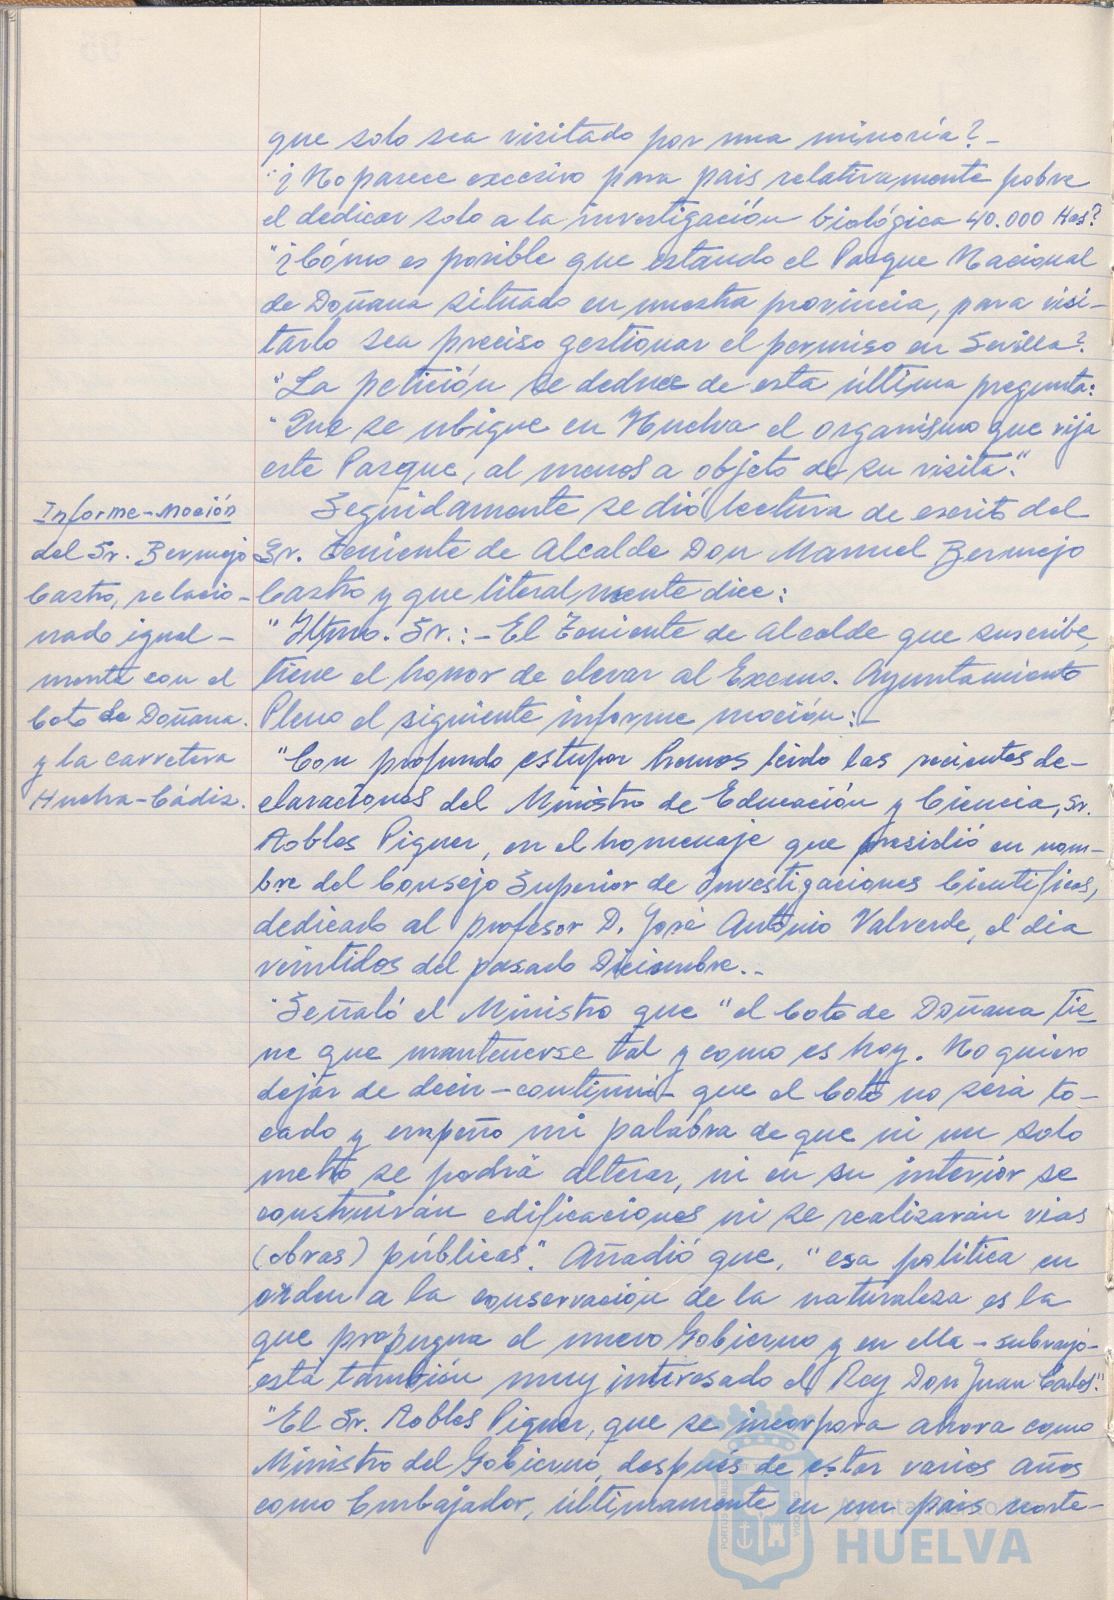 que solo sea visitado por una minoría?_
"¿No parece excesivo para pais relativamente pobre
el dedicar solo a la investigación biológica 40.000 Has?
"¿Cómo es posible que estando el Parque Nacional
de Doñana situado en nuestra provincia, para visi-
tarlo sea preciso gestionar el permiso en Sevilla?.
"La petición se deduce de esta última pregunta:
"Que se ubique en Huelva el organismo que rija
este Parque, al menos a objeto de su visita."
Informe-moción
del Sr. Bermejo
Castro, relacio-
nado igual-
mente con el
Coto de Doñana.
y la carretera
Huelva-Cádiz.
Seguidamente se dió lectura de escrito del
Sr. Teniente de Alcalde Don Manuel Bermejo
Castro y que literalmente dice:
"Iltmo. Sr.:-El Teniente de Alcalde que suscribe,
tiene el honor de elevar al Excmo. Ayuntamiento
Pleno el siguiente informe moción:-
"Con profundo estupor hemos leido las recientes de-
claraciones del Ministro de Educación y Ciencia, Sr.
Robles Piquer, en el homenaje que presidió en nom-
bre del Consejo Superior de Investigaciones Cientificas,
dedicado al profesor D. José Antonio Valverde, el dia
veintidos del pasado Diciembre.._
"Señaló el Ministro que "el Coto de Doñana tie-
ne que mantenerse tal y como es hoy. No quiero
dejar de decir-continuó- que el Coto no será to-
cado y empeño mi palabra de que ni un solo
metro se podrá alterar, ni en su interior se
construirán edificaciones ni se realizarán vias
(obras) públicas". Añadió que, "esa politica en
orden a la conservación de la naturaleza es la
que propugna el nuevo Gobierno y en ella -subrayó-
está también muy interesado el Rey Don Juan Carlos".
"El Sr. Robles Piquer, que se incorpora ahora como
Ministro del Gobierno, después de estar varios años
como Embajador, últimamente en un pais norte-
Ayuntamiento de
HUELVA